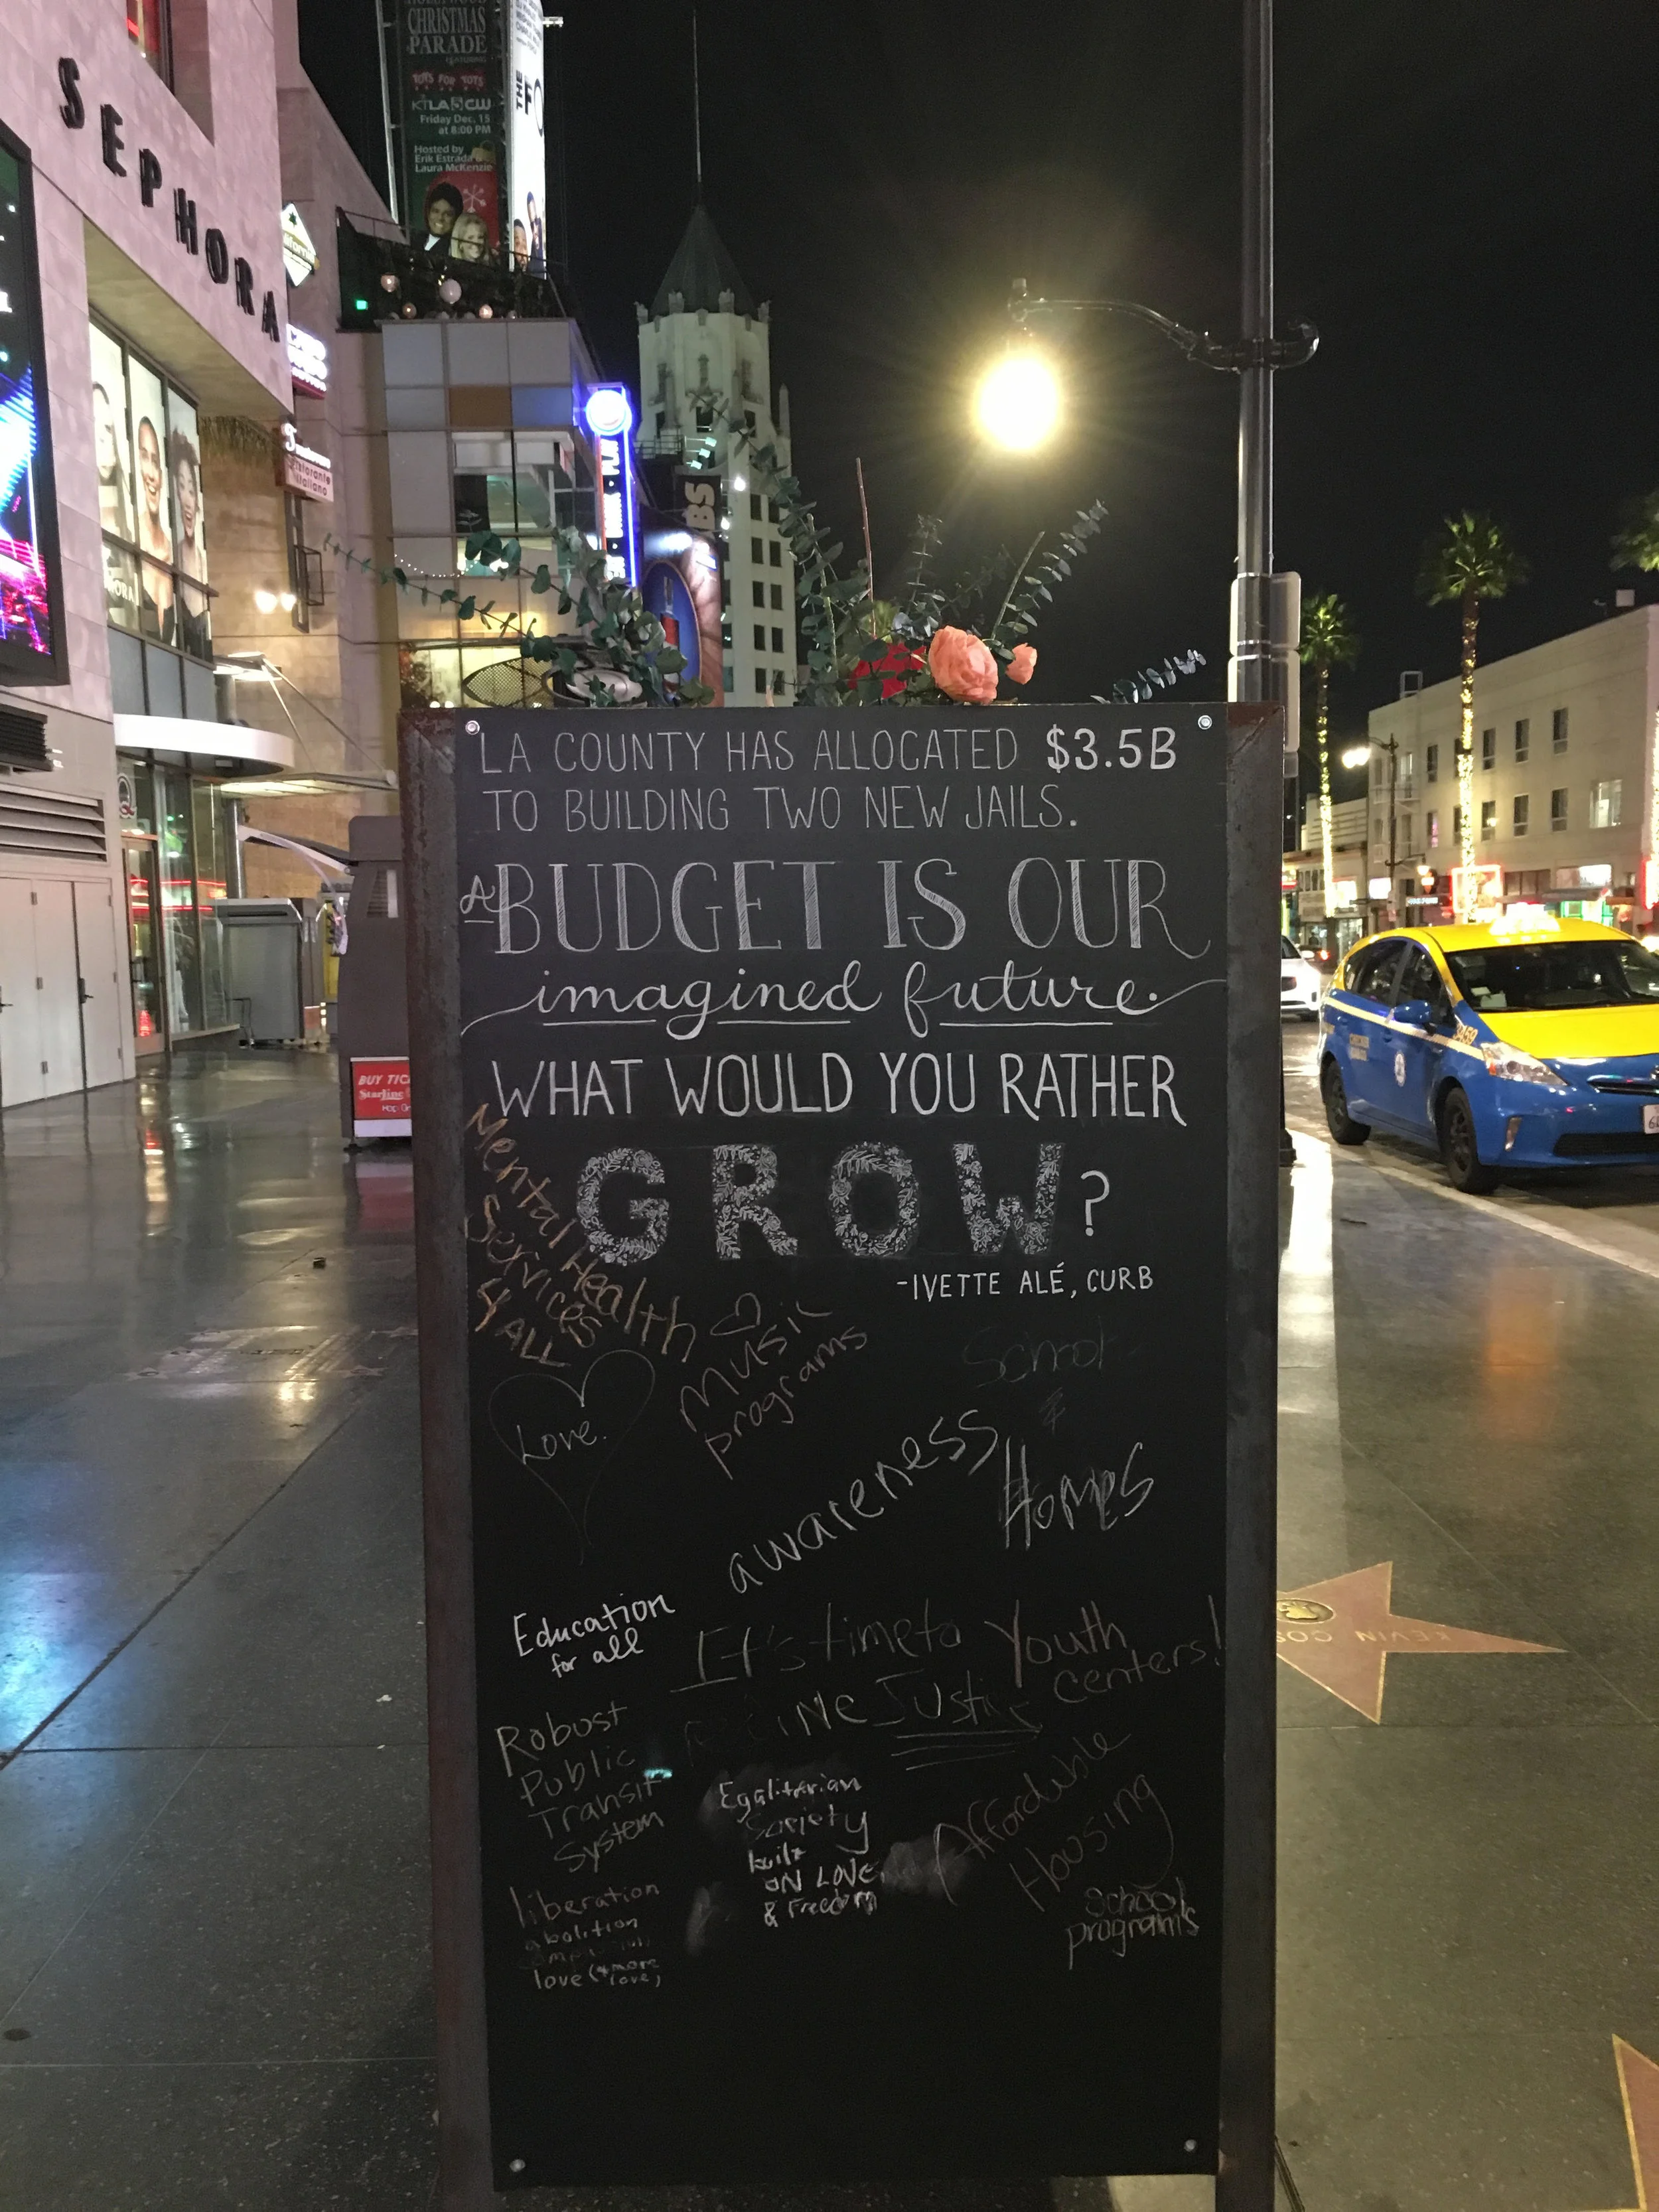 SEPHORA
CHRISTMAS
PARADE
FEATURING
TOYS FOR TOTS
KTLA 5 CW
Friday Dec. 15
at 8:00 PM
Hosted by
Erik Estrada &
Laura McKenzie
THE
BUY
LA COUNTY HAS ALLOCATED $3.5B
TO BUILDING TWO NEW JAILS.
A BUDGET IS OUR
imagined future.
WHAT WOULD YOU RATHER
GROW?
-IVETTE ALÉ, CURB
Mental Health
Services
4 ALL
Music
programs
School
&
Homes
Love.
awareness
Education
for all
It's time to
Justice
Youth
centers!
Robust
Public
Transit
System
Egalitarian
Society
built
ON LOVE
& Freedom
Affordable
Housing
School
programs
liberation
abolition
love (& more
love)
KEVIN
3459